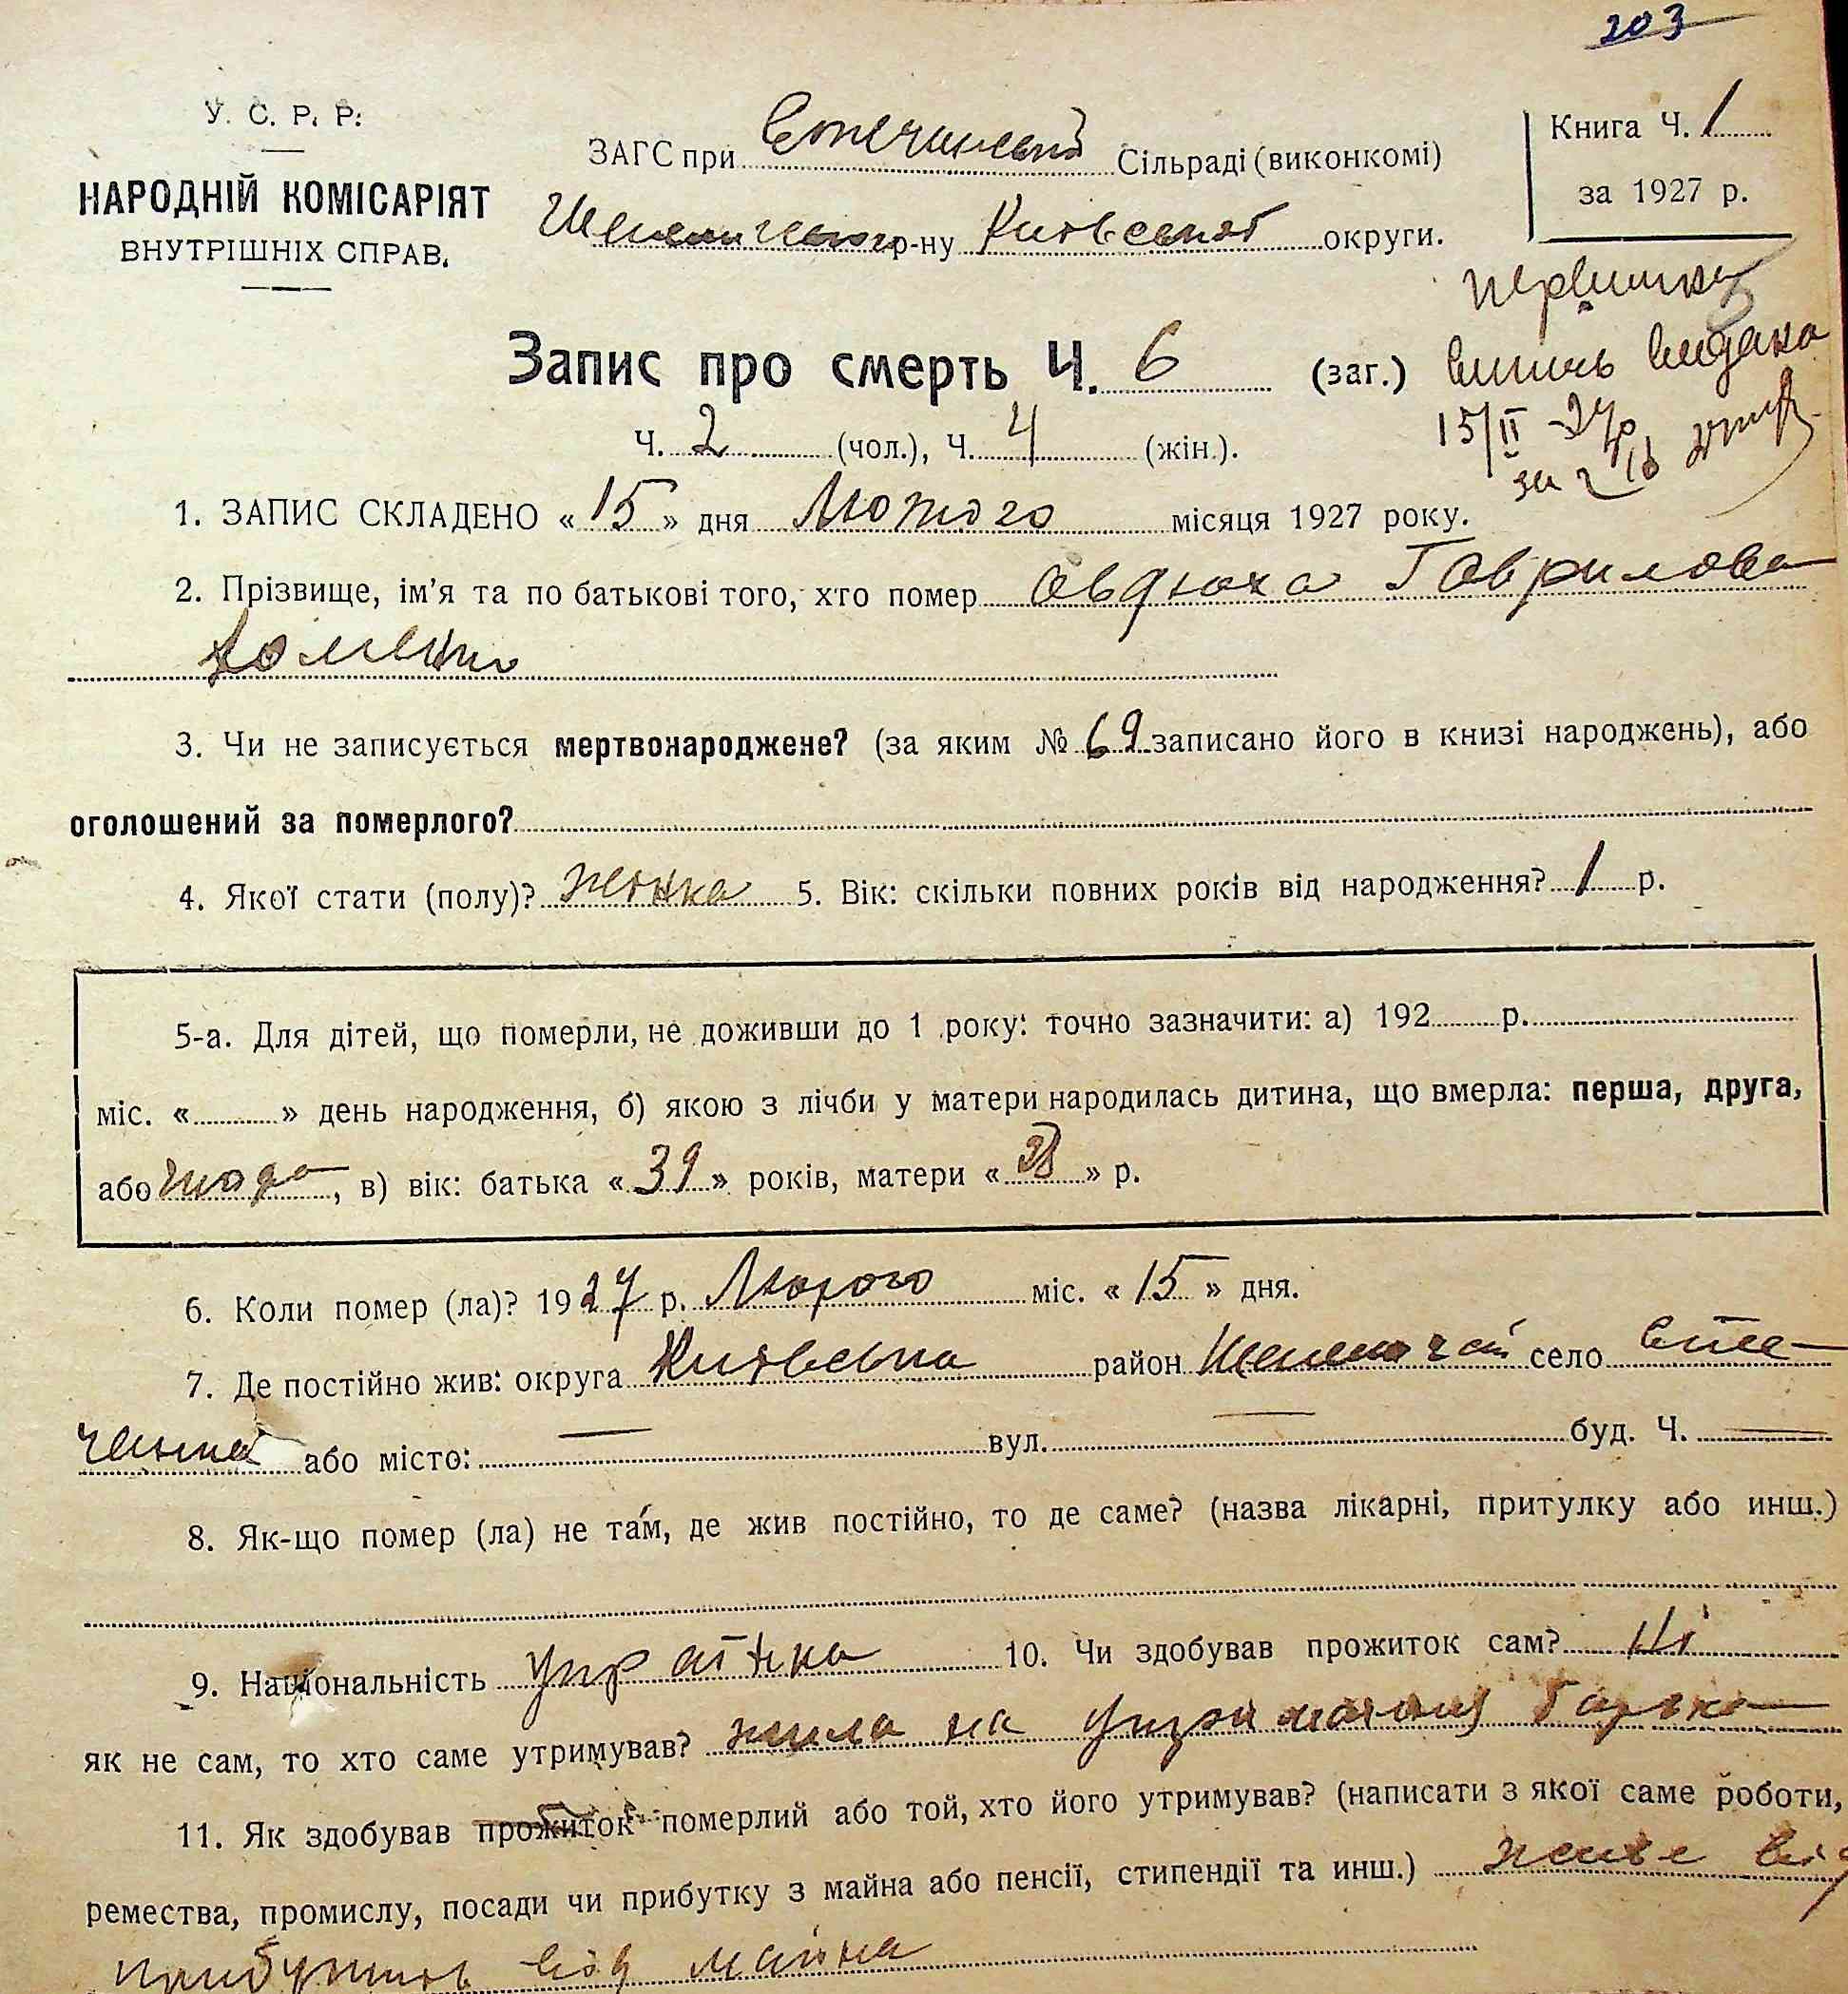 203
У. С. Р. Р.
НАРОДНІЙ КОМІСАРІЯТ
ВНУТРІШНІХ СПРАВ.
ЗАГС при Сільраді (виконкомі)
р-ну Київської округи.
Книга Ч. 1
за 1927 р.
Запис про смерть Ч. 6 (заг.)
Ч. 2 (чол.), Ч. 4 (жін.).
первишка
випись видана
15/II - 27р
за №
1. ЗАПИС СКЛАДЕНО « 15 » дня Лютого місяця 1927 року.
2. Прізвище, ім'я та по батькові того, хто помер Овдюха Гаврилова
3. Чи не записується мертвонароджене? (за яким № 69 записано його в книзі народжень), або
оголошений за померлого?
4. Якої стати (полу)? жінка 5. Вік: скільки повних років від народження? 1 р.
5-а. Для дітей, що померли, не доживши до 1 року: точно зазначити: а) 192 р.
міс. « » день народження, б) якою з лічби у матери народилась дитина, що вмерла: перша, друга,
або шоста, в) вік: батька « 39 » років, матери « » р.
6. Коли помер (ла)? 1927 р. Лютого міс. « 15 » дня.
7. Де постійно жив: округа Київська район село
або місто: — вул. — буд. Ч. —
8. Як-що помер (ла) не там, де жив постійно, то де саме? (назва лікарні, притулку або инш.)
9. Національність українка 10. Чи здобував прожиток сам? Ні
як не сам, то хто саме утримував? жила на утриманні батька
11. Як здобував прожиток померлий або той, хто його утримував? (написати з якої саме роботи,
ремества, промислу, посади чи прибутку з майна або пенсії, стипендії та инш.) живе від
прибутків від майна